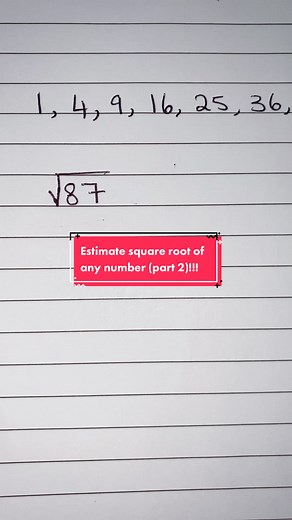 1, 4, 9, 16, 25, 36,
√87
Estimate square root of
any number (part 2)!!!